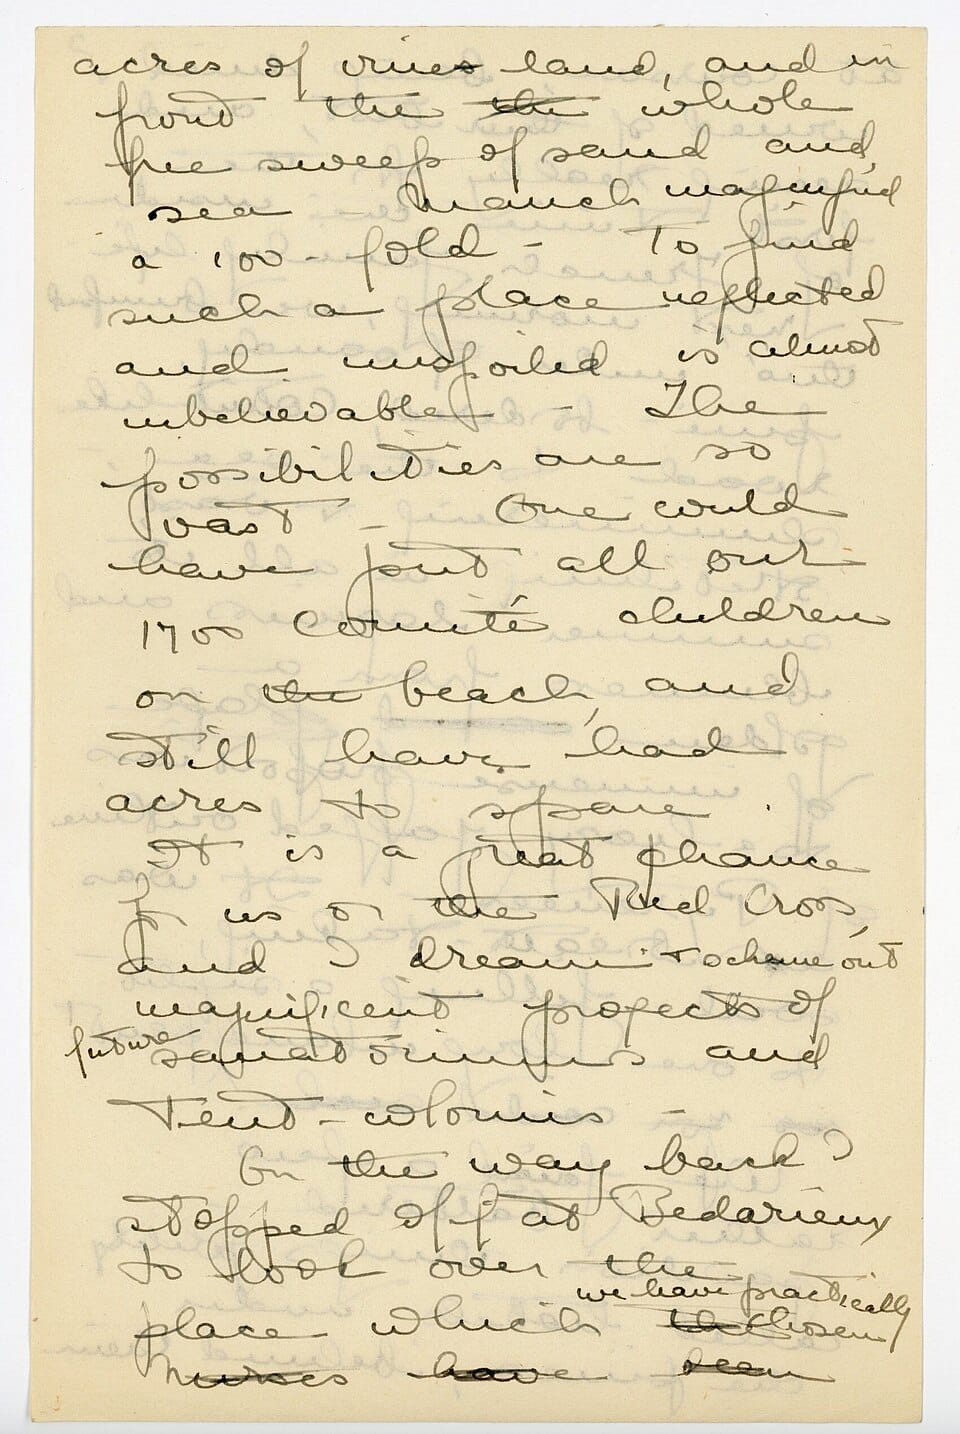 acres of vines land, and in
front the the whole
free sweep of sand and
sea - Manch magnified
a 100 - fold - To find
such a place neglected
and unspoiled is almost
unbelievable - The
possibilities are so
vast - One could
have put all our
1700 Comité children
on the beach, and
still have had
acres to spare.
It is a great chance
for us or the Red Cross,
and I dream + scheme out
magnificent projects of
future sanatoriums and
tent-colonies -
On the way back I
stopped off at Bedarieux
to look over the
we have practically
place which the chosen
Nurses have been